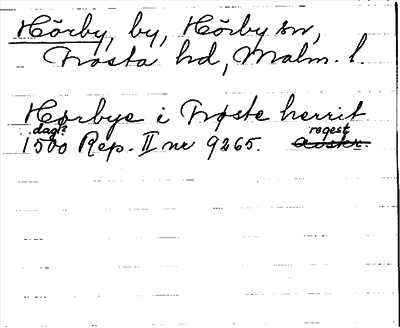 Hörby, by, Hörby sn,
Frosta hd, Malm. l.
Hørbye i Frøste herrit
dag? regest
1500 Rep. II nr 9265. avskr.